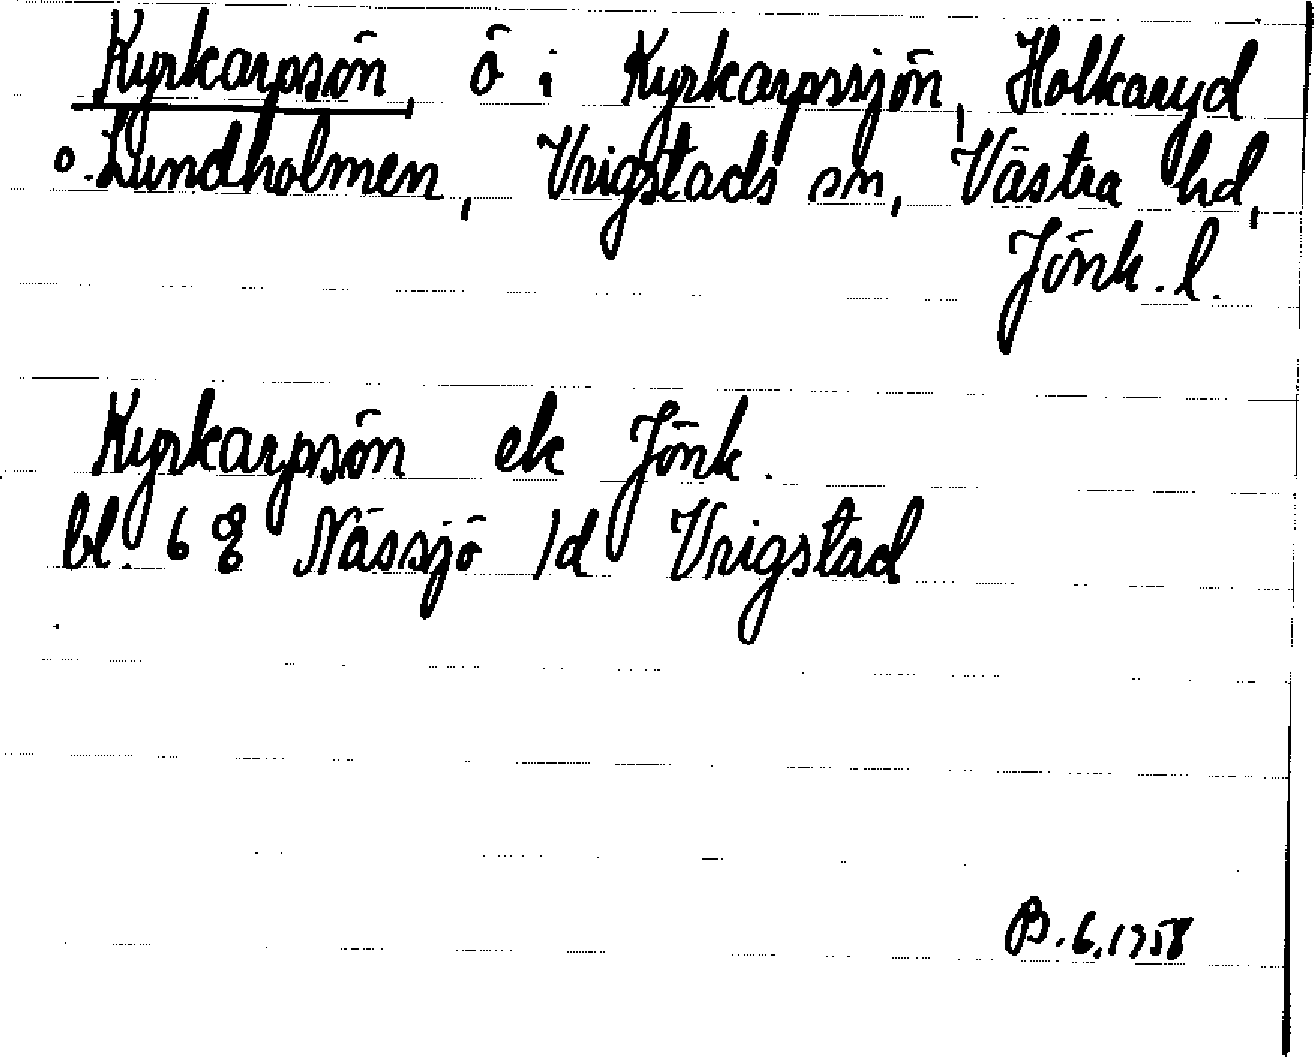 Kyrkarpsön, ö i Kyrkarpssjön, Holkaryd
o. Lundholmen, Vrigstads sn, Västra hd,
Jönk. l.
Kyrkarpsön ek Jönk.
bl. 6 g Nässjö 1d Vrigstad
B. 6. 1958